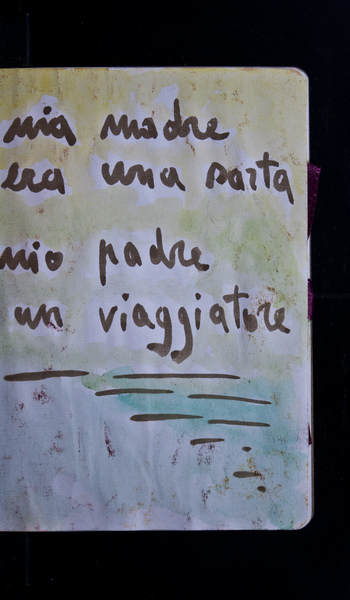 mia madre
era una sarta
mio padre
un viaggiatore